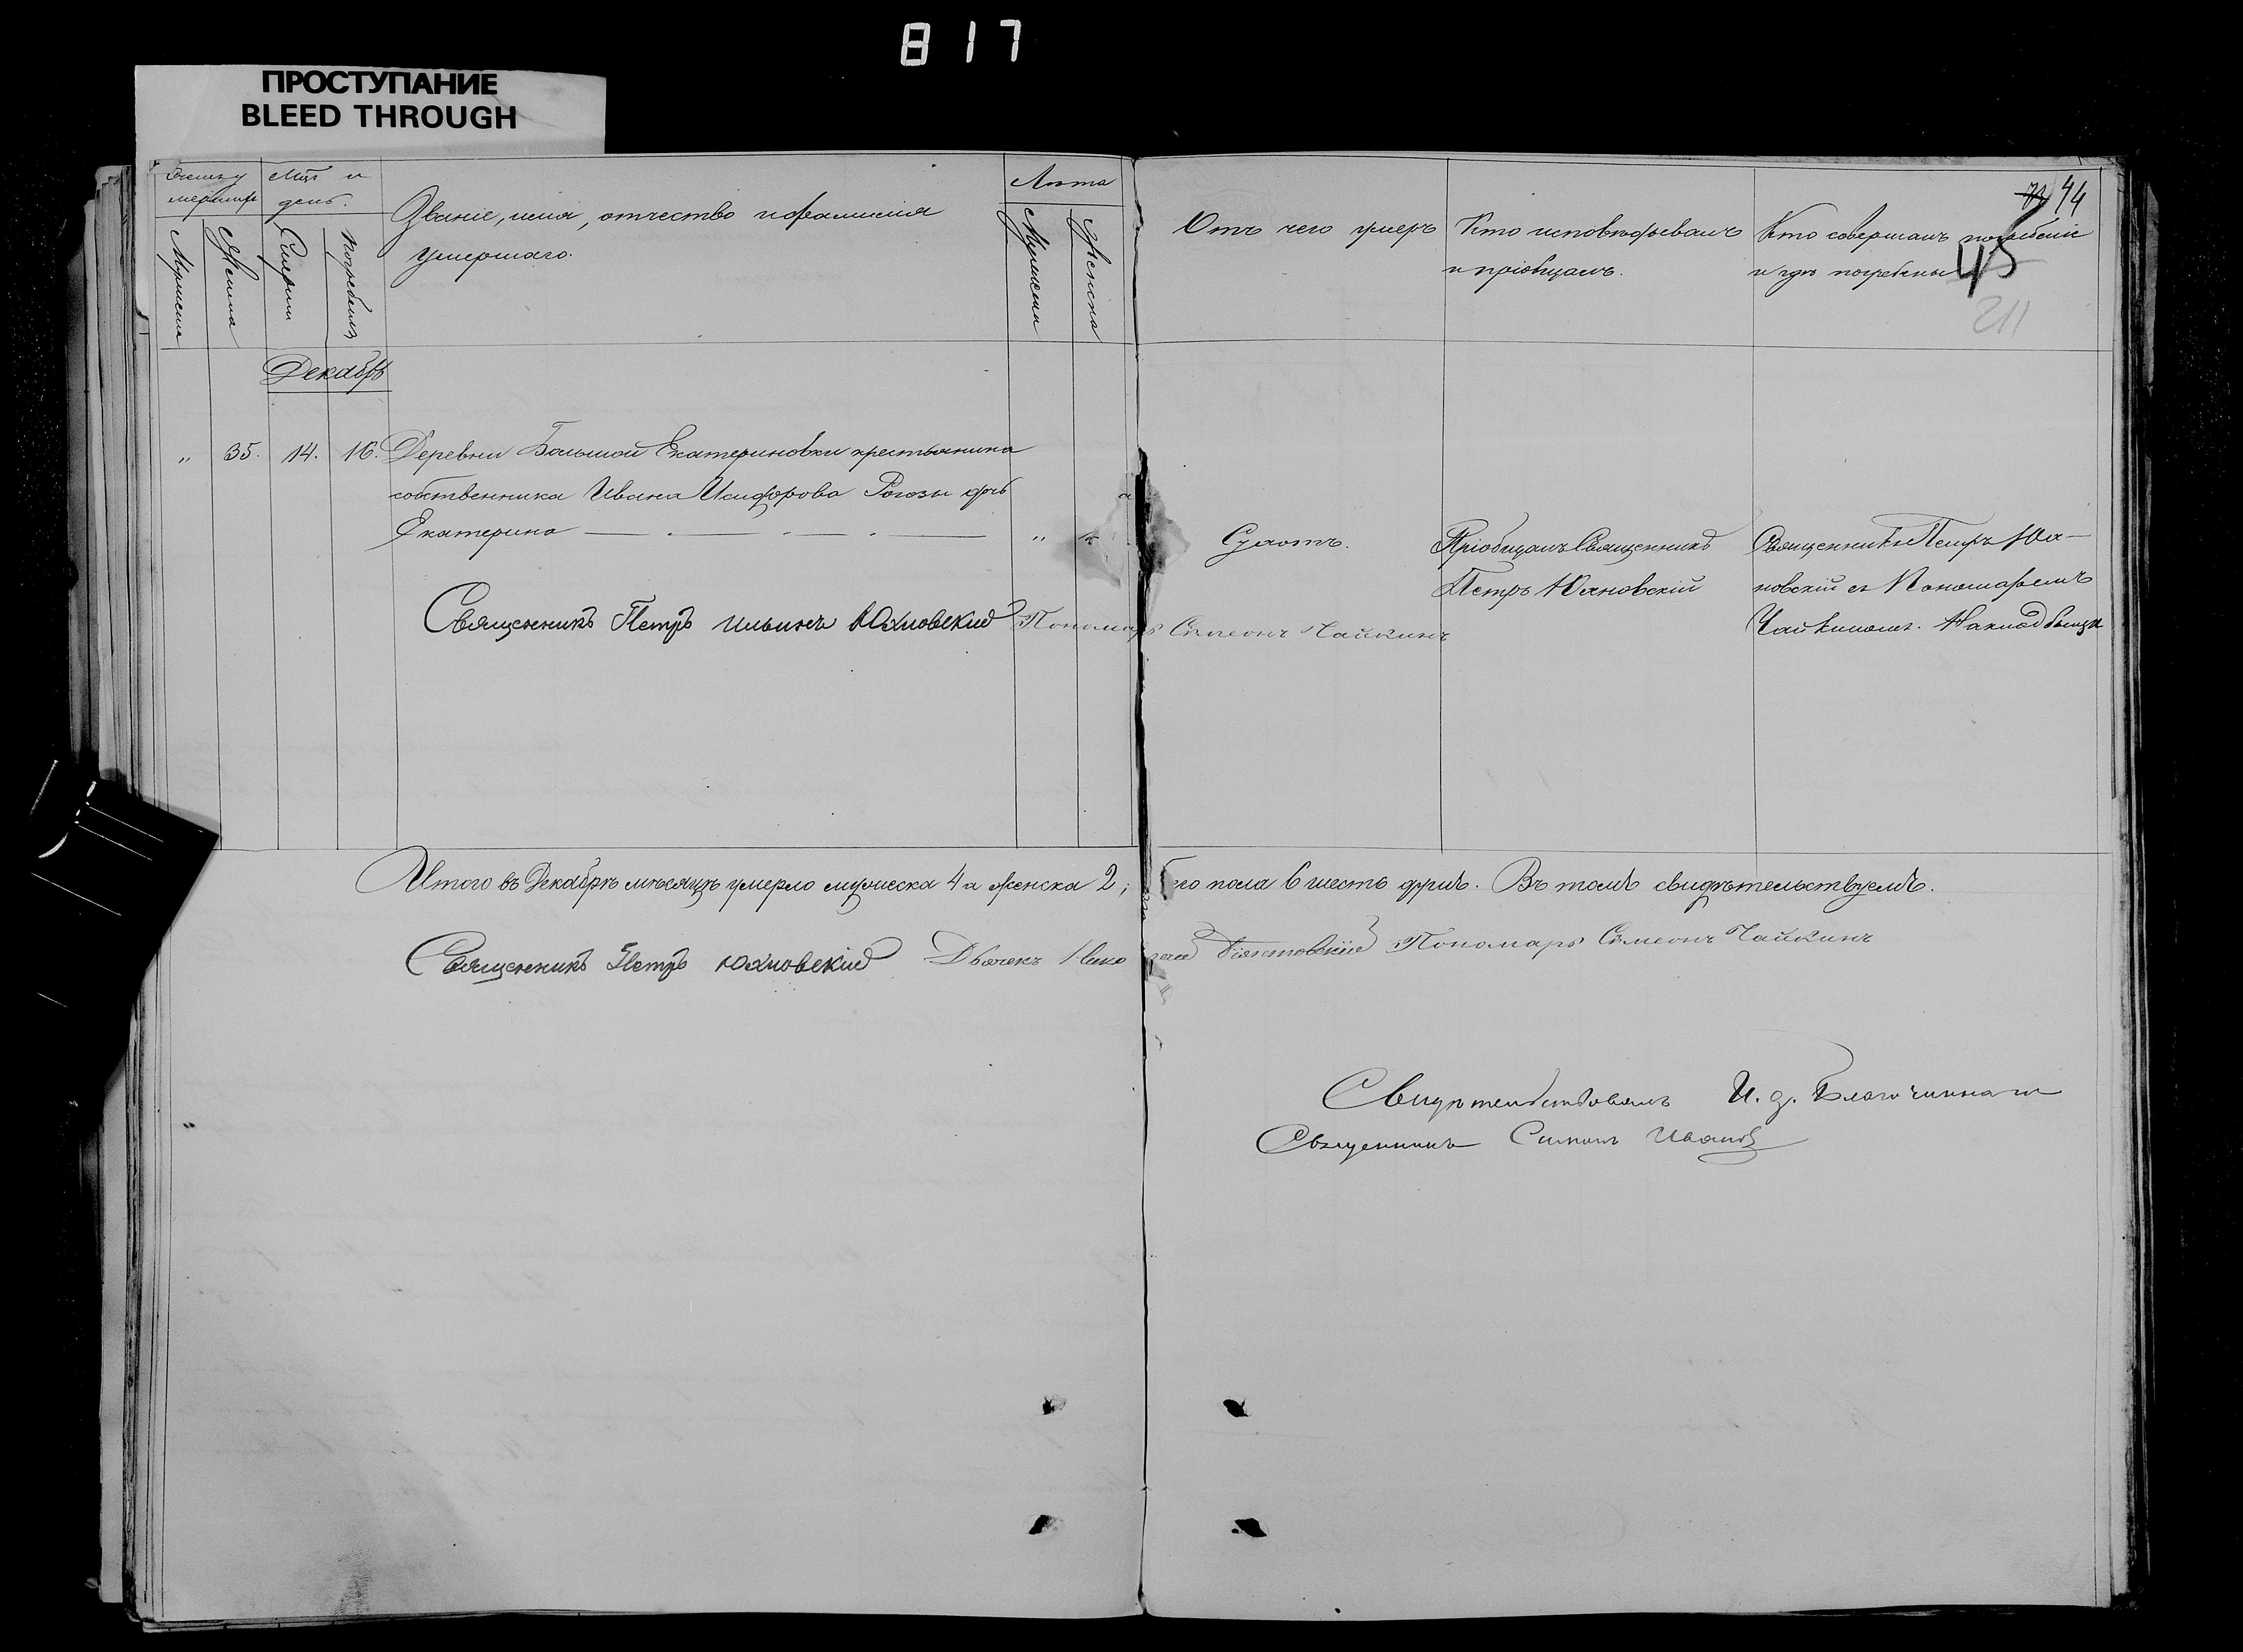 817
ПРОСТУПАНИЕ
BLEED THROUGH
44
45
211
Мѣс и
день.
Званіе, имя, отчество и фамилія
умершаго.
Лѣта
Мужеска
Женска
Мужеска
Женска
Смерти
Погребенія
Отъ чего умеръ
Кто исповѣдывалъ
и пріобщалъ.
Кто совершалъ погребеніе
и гдѣ погребены
Декабрь
" 35. 14. 16. Деревни Большой Екатериновки крестьянина
собственника Ивана Исидорова Рогозы дочь
Екатерина "
Сухотъ.
Пріобщалъ Священникъ
Петръ Юхновскій
Священникъ Петръ Юх-
новскій съ Пономаремъ
Чайкинымъ. На кладбищѣ
Священникъ Петръ Ильинъ Юхновскій Пономарь Сѵмеонъ Чайкинъ
Итого въ Декабрѣ мѣсяцѣ умерло мужеска 4 а женска 2, его пола 6 шесть душъ. Въ томъ свидѣтельствуемъ.
Священникъ Петръ Юхновскій Дьячекъ Пономарь Сѵмеонъ Чайкинъ
Свидѣтельствовалъ И. д. Благочиннаго
Священникъ Симеонъ Ивановъ